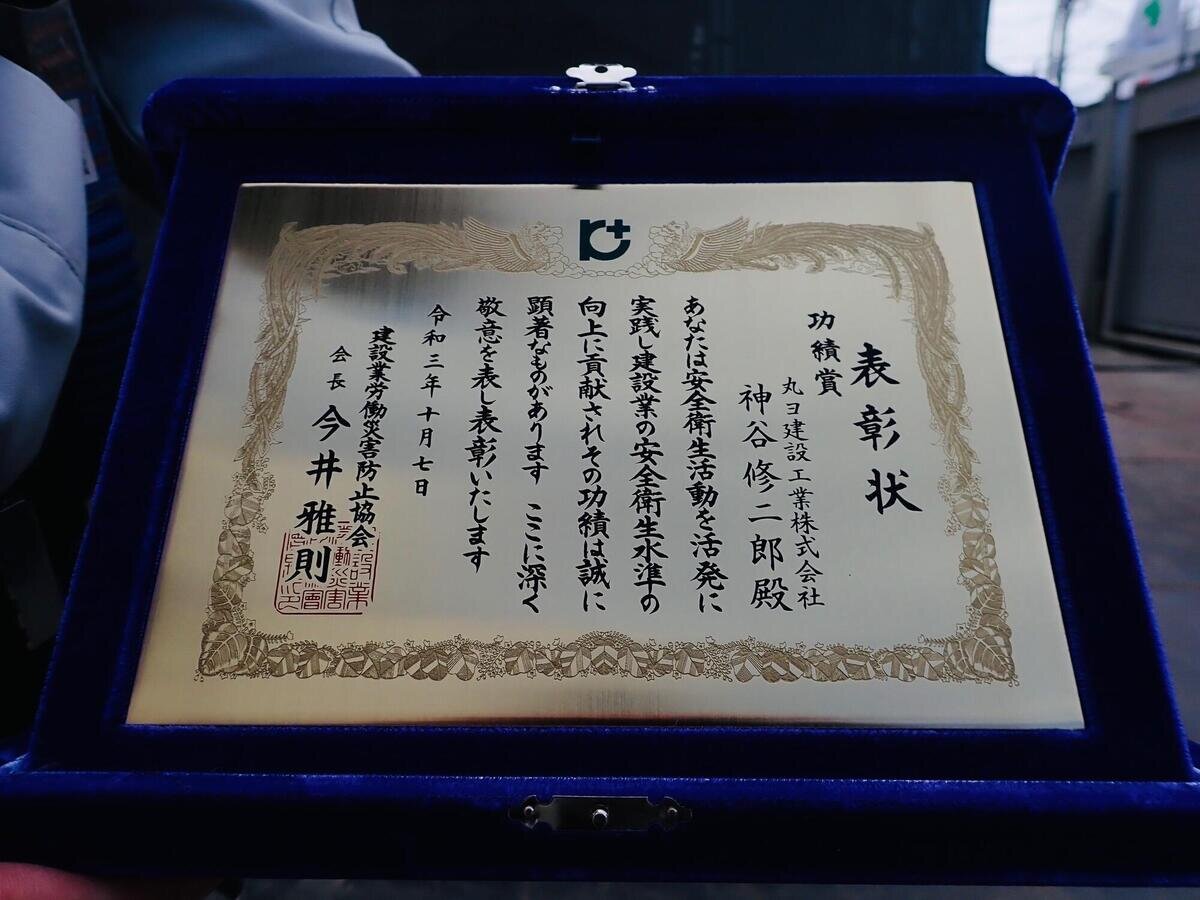 表彰状
功績賞
丸ヨ建設工業株式会社
神谷修二郎殿
あなたは安全衛生活動を活発に
実践し建設業の安全衛生水準の
向上に貢献されその功績は誠に
顕著なものがあります ここに深く
敬意を表し表彰いたします
令和三年十月七日
建設業労働災害防止協会
会長 今井雅則